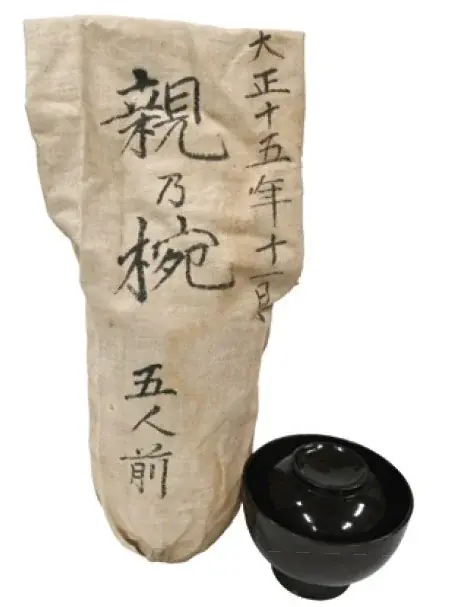 大正十五年十一月
親乃椀
五人前